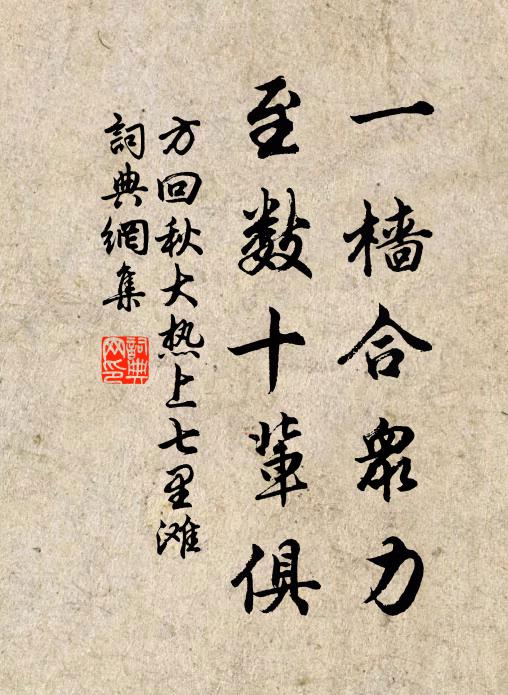 一檣合眾力
至數十輩俱
方回秋大热上七里滩
詞典網集
詞典網印